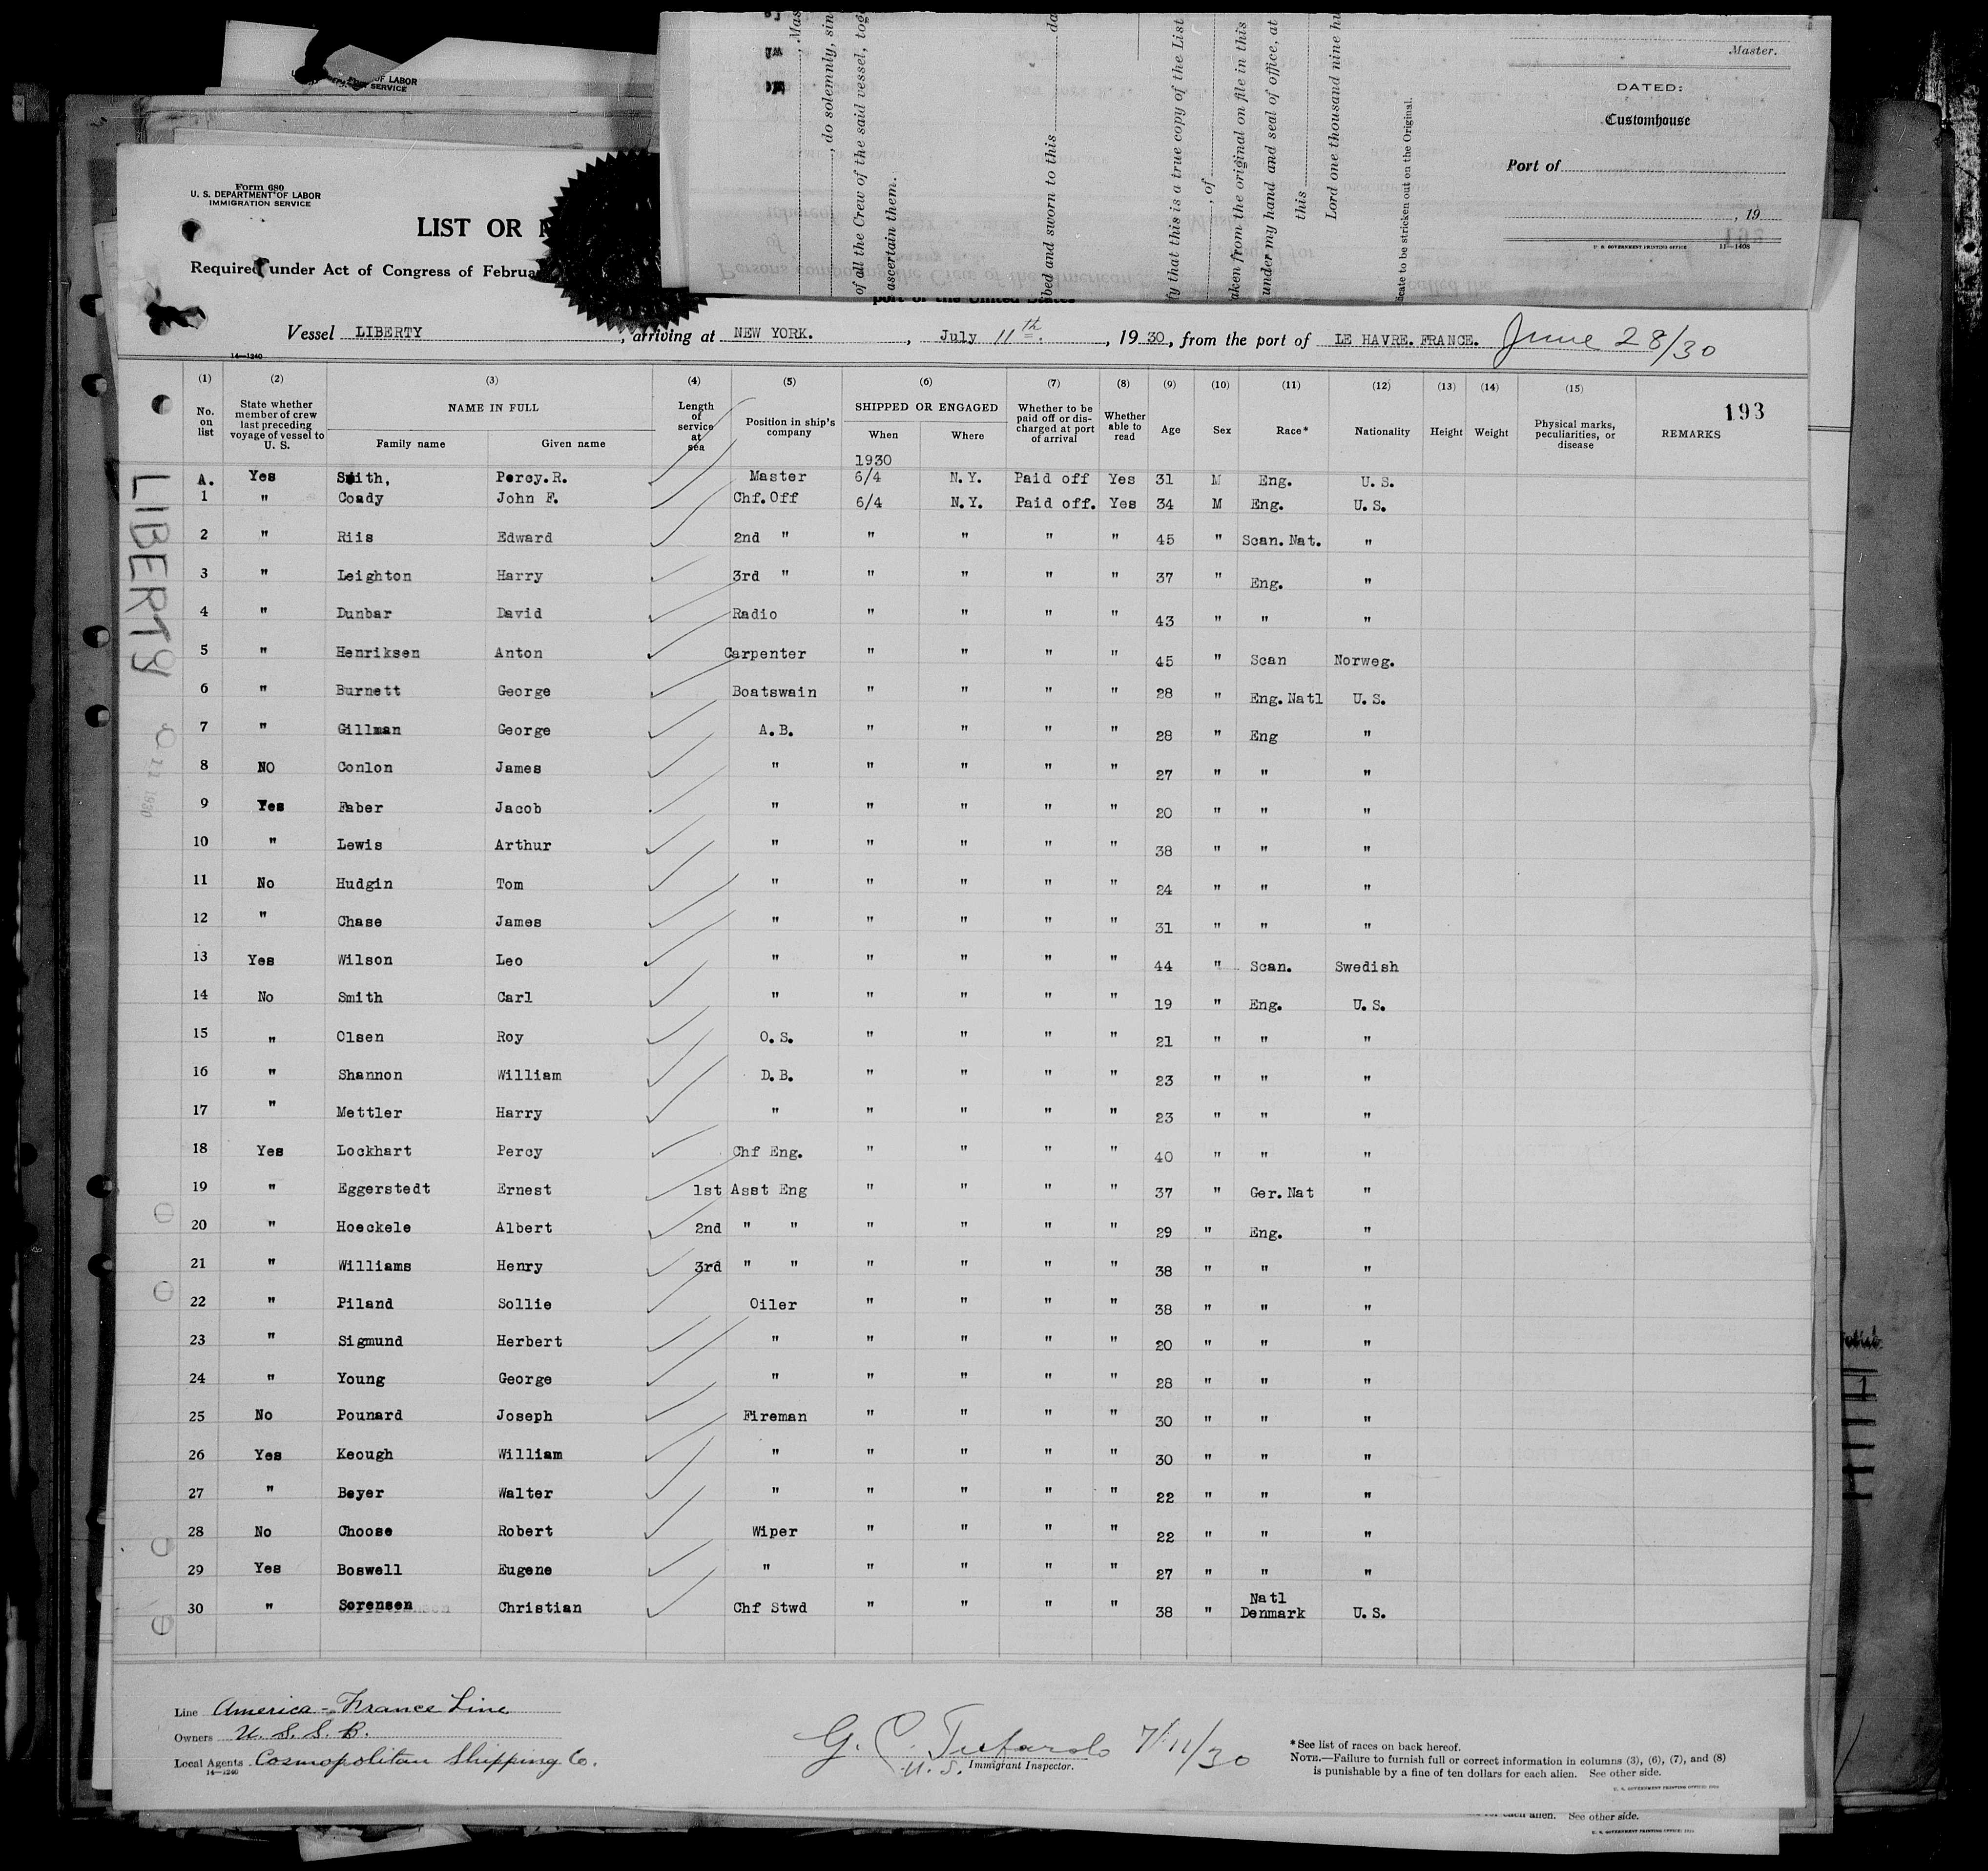 OF LABOR
SERVICE
Master.
DATED:
Customhouse
Port of
, 19
U. S. GOVERNMENT PRINTING OFFICE 11—1408
, do solemnly, sin
of all the Crew of the said vessel, toge
ascertain them.
bed and sworn to this da
fy that this is a true copy of the List
, of
aken from the original on file in this
under my hand and seal of office, at
this
Lord one thousand nine hu
icate to be stricken out on the Original.
Form 680
U. S. DEPARTMENT OF LABOR
IMMIGRATION SERVICE
LIST OR
Required under Act of Congress of Februa
port of the United States
Vessel LIBERTY, arriving at NEW YORK., July 11th., 1930, from the port of LE HAVRE. FRANCE. June 28/30
14—1240
(1) (2) (3) (4) (5) (6) (7) (8) (9) (10) (11) (12) (13) (14) (15)
No. on list State whether member of crew last preceding voyage of vessel to U. S. NAME IN FULL Family name Given name Length of service at sea Position in ship's company SHIPPED OR ENGAGED When Where Whether to be paid off or discharged at port of arrival Whether able to read Age Sex Race* Nationality Height Weight Physical marks, peculiarities, or disease REMARKS
193
1930
A. Yes Smith, Percy.R. Master 6/4 N.Y. Paid off Yes 31 M Eng. U.S.
1 " Coady John F. Chf.Off 6/4 N.Y. Paid off. Yes 34 M Eng. U.S.
2 " Riis Edward 2nd " " " " " 45 " Scan.Nat. "
3 " Leighton Harry 3rd " " " " " 37 " Eng. "
4 " Dunbar David Radio " " " " 43 " " "
5 " Henriksen Anton Carpenter " " " " 45 " Scan Norweg.
6 " Burnett George Boatswain " " " " 28 " Eng.Natl U.S.
7 " Gillman George A.B. " " " " 28 " Eng "
8 NO Conlon James " " " " " 27 " " "
9 Yes Faber Jacob " " " " " 20 " " "
10 " Lewis Arthur " " " " " 38 " " "
11 No Hudgin Tom " " " " " 24 " " "
12 " Chase James " " " " " 31 " " "
13 Yes Wilson Leo " " " " " 44 " Scan. Swedish
14 No Smith Carl " " " " " 19 " Eng. U.S.
15 " Olsen Roy O.S. " " " " 21 " " "
16 " Shannon William D.B. " " " " 23 " " "
17 " Mettler Harry " " " " " 23 " " "
18 Yes Lockhart Percy Chf Eng. " " " " 40 " " "
19 " Eggerstedt Ernest 1st Asst Eng " " " " 37 " Ger.Nat "
20 " Hoeckele Albert 2nd " " " " " " 29 " Eng. "
21 " Williams Henry 3rd " " " " " " 38 " " "
22 " Piland Sollie Oiler " " " " 38 " " "
23 " Sigmund Herbert " " " " " 20 " " "
24 " Young George " " " " " 28 " " "
25 No Pounard Joseph Fireman " " " " 30 " " "
26 Yes Keough William " " " " " 30 " " "
27 " Beyer Walter " " " " " 22 " " "
28 No Choose Robert Wiper " " " " 22 " " "
29 Yes Boswell Eugene " " " " " 27 " " "
30 " Sorensen Christian Chf Stwd " " " " 38 " Natl Denmark U.S.
LIBERTY
11 1930
Line America-France Line
Owners U.S.S.B.
Local Agents Cosmopolitan Shipping Co.
14—1240
G. C. Tufarolo 7/11/30
U. S. Immigrant Inspector.
*See list of races on back hereof.
NOTE.—Failure to furnish full or correct information in columns (3), (6), (7), and (8)
is punishable by a fine of ten dollars for each alien. See other side.
U. S. GOVERNMENT PRINTING OFFICE
for each alien. See other side.
U. S. GOVERNMENT PRINTING OFFICE